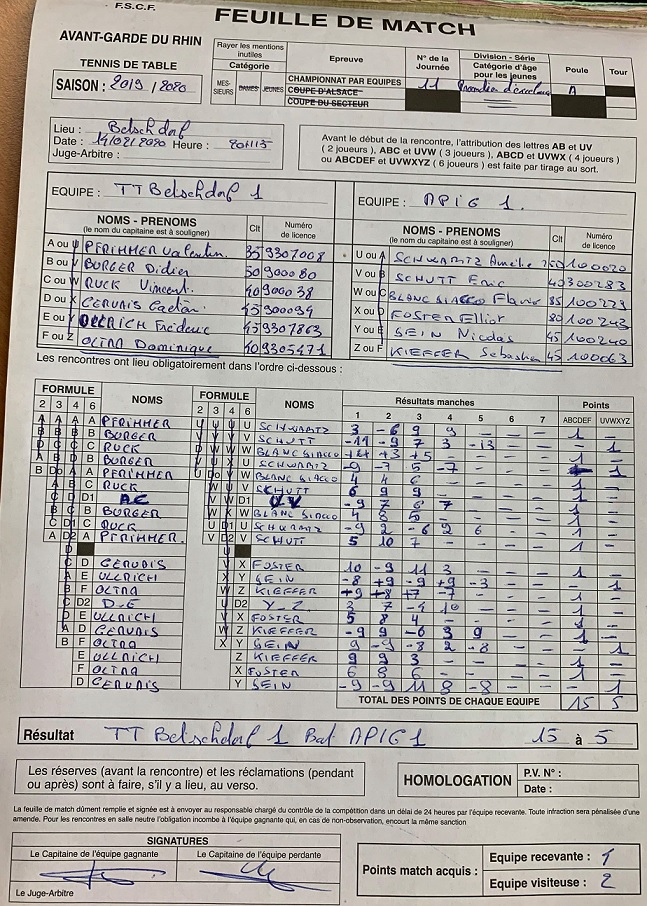 F.S.C.F.
FEUILLE DE MATCH
AVANT-GARDE DU RHIN
TENNIS DE TABLE
SAISON : 2019 / 2020
Rayer les mentions inutiles
Catégorie
MESSIEURS DAMES JEUNES
Epreuve
CHAMPIONNAT PAR EQUIPES
COUPE D'ALSACE
COUPE DU SECTEUR
N° de la Journée
11
Division - Série
Catégorie d'âge pour les jeunes
Poule
A
Tour
Lieu : Betschdorf
Date : 14/02/2020 Heure : 20H15
Juge-Arbitre :
Avant le début de la rencontre, l'attribution des lettres AB et UV
( 2 joueurs ), ABC et UVW ( 3 joueurs ), ABCD et UVWX ( 4 joueurs )
ou ABCDEF et UVWXYZ ( 6 joueurs ) est faite par tirage au sort.
EQUIPE : TT Betschdorf 1
EQUIPE : APIG 1.
NOMS - PRENOMS
(le nom du capitaine est à souligner)
Clt
Numéro de licence
NOMS - PRENOMS
(le nom du capitaine est à souligner)
Clt
Numéro de licence
A ou U PFRIMMER Valentin 35 9307008
B ou V BURGER Didier 50 900080
C ou W RUCK Vincent 40 900038
D ou X GERVAIS Gaëtan 45 900094
E ou Y ULLRICH Frédéric 45 9307863
F ou Z OLTRA Dominique 40 9305471
U ou A SCHWARTZ Aurélie 100020
V ou B SCHUTT Eric 40 300283
W ou C BLANC SIACCO Flavie 85 100229
X ou D FOSTER Elliot 80 100243
Y ou E SEIN Nicolas 45 100240
Z ou F KIEFFER Sebastien 45 100063
Les rencontres ont lieu obligatoirement dans l'ordre ci-dessous :
FORMULE
2 3 4 6
NOMS
FORMULE
2 3 4 6
NOMS
Résultats manches
1 2 3 4 5 6 7
Points
ABCDEF UVWXYZ
A A A A PFRIMMER U U U U SCHWARTZ 3 -6 9 9 - - - 1 -
B B B B BURGER V V V V SCHUTT -11 -9 7 3 -13 - - - 1
C C C RUCK W W W BLANC SIACCO +4 +3 +5 - - - - 1 -
B BURGER U SCHWARTZ -9 -7 5 -7 - - - 1
A PFRIMMER W BLANC SIACCO 4 4 6 - - - - 1 -
C RUCK V SCHUTT 6 9 9 - - - - 1 -
D1 A.C D1 U.V -9 7 6 7 - - - 1 -
B BURGER W BLANC SIACCO 4 8 5 - - - - 1 -
C RUCK U SCHWARTZ -9 2 -6 2 6 - - 1 -
A PFRIMMER. V SCHUTT 5 10 7 - - - - 1 -
D GERVAIS X FOSTER 10 -9 11 3 - - - 1 -
E ULLRICH Y SEIN -8 +9 -9 +9 -3 - - - 1
F OLTRA Z KIEFFER +9 +8 +7 -7 - - - 1 -
D2 D-E D2 Y-Z 3 7 -4 10 - - - 1 -
E ULLRICH X FOSTER 5 8 4 - - - - 1 -
D GERVAIS Z KIEFFER -9 9 -6 3 9 - - 1 -
F OLTRA Y SEIN 9 -9 -8 2 -8 - - - 1
E ULLRICH Z KIEFFER 9 9 3 - - - - 1 -
F OLTRA X FOSTER 6 8 6 - - - - 1 -
D GERVAIS Y SEIN -9 -9 11 8 -8 - - - 1
TOTAL DES POINTS DE CHAQUE EQUIPE 15 5
Résultat TT Betschdorf 1 Bat APIG 1 15 à 5
Les réserves (avant la rencontre) et les réclamations (pendant
ou après) sont à faire, s'il y a lieu, au verso.
HOMOLOGATION
P.V. N° :
Date :
La feuille de match dûment remplie et signée est à envoyer au responsable chargé du contrôle de la compétition dans un délai de 24 heures par l'équipe recevante. Toute infraction sera pénalisée d'une
amende. Pour les rencontres en salle neutre l'obligation incombe à l'équipe gagnante qui, en cas de non-observation, encourt la même sanction
SIGNATURES
Le Capitaine de l'équipe gagnante
Le Capitaine de l'équipe perdante
Le Juge-Arbitre
Points match acquis :
Equipe recevante : 1
Equipe visiteuse : 2